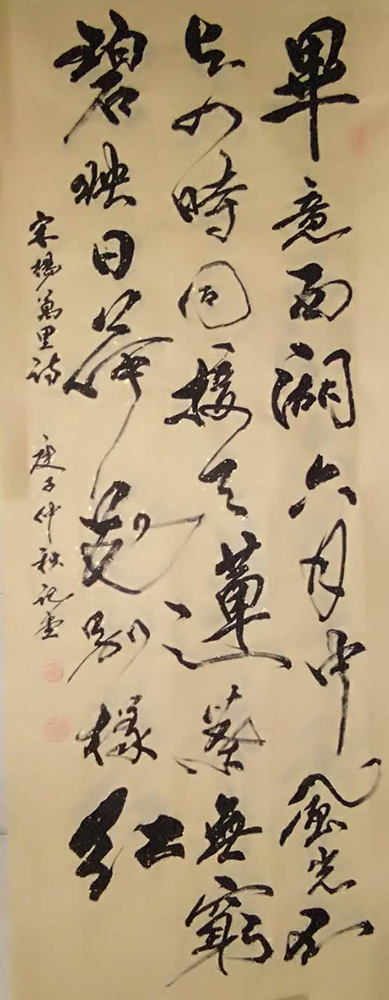 畢竟西湖六月中風光不
與四時同接天蓮葉無窮
碧映日荷花別樣紅
宋楊萬里詩 庚子仲秋